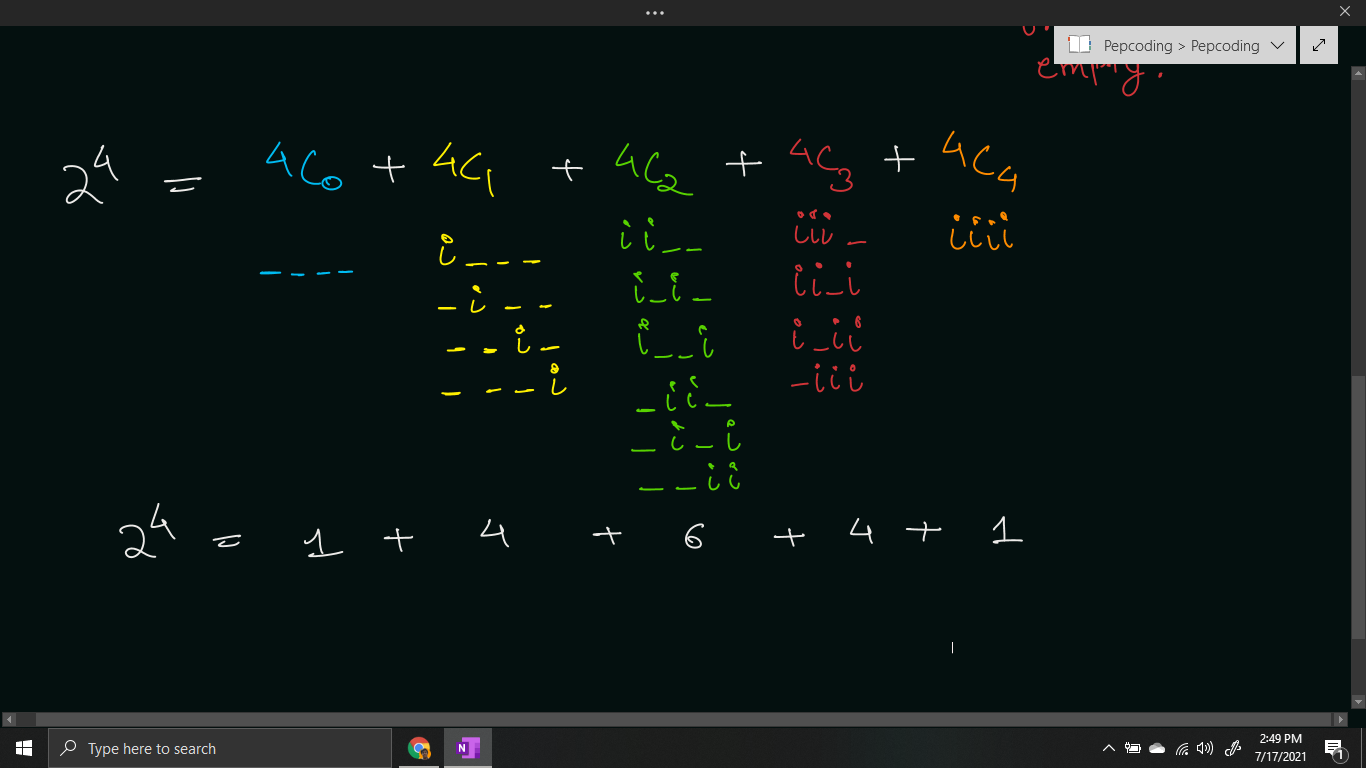 Pepcoding > Pepcoding
empty.
2⁴ = ⁴C₀ + ⁴C₁ + ⁴C₂ + ⁴C₃ + ⁴C₄
_ _ _ _
i _ _ _
_ i _ _
_ _ i _
_ _ _ i
i i _ _
i _ i _
i _ _ i
_ i i _
_ i _ i
_ _ i i
i i i _
i i _ i
i _ i i
_ i i i
i i i i
2⁴ = 1 + 4 + 6 + 4 + 1
Type here to search
N
2:49 PM
7/17/2021
1